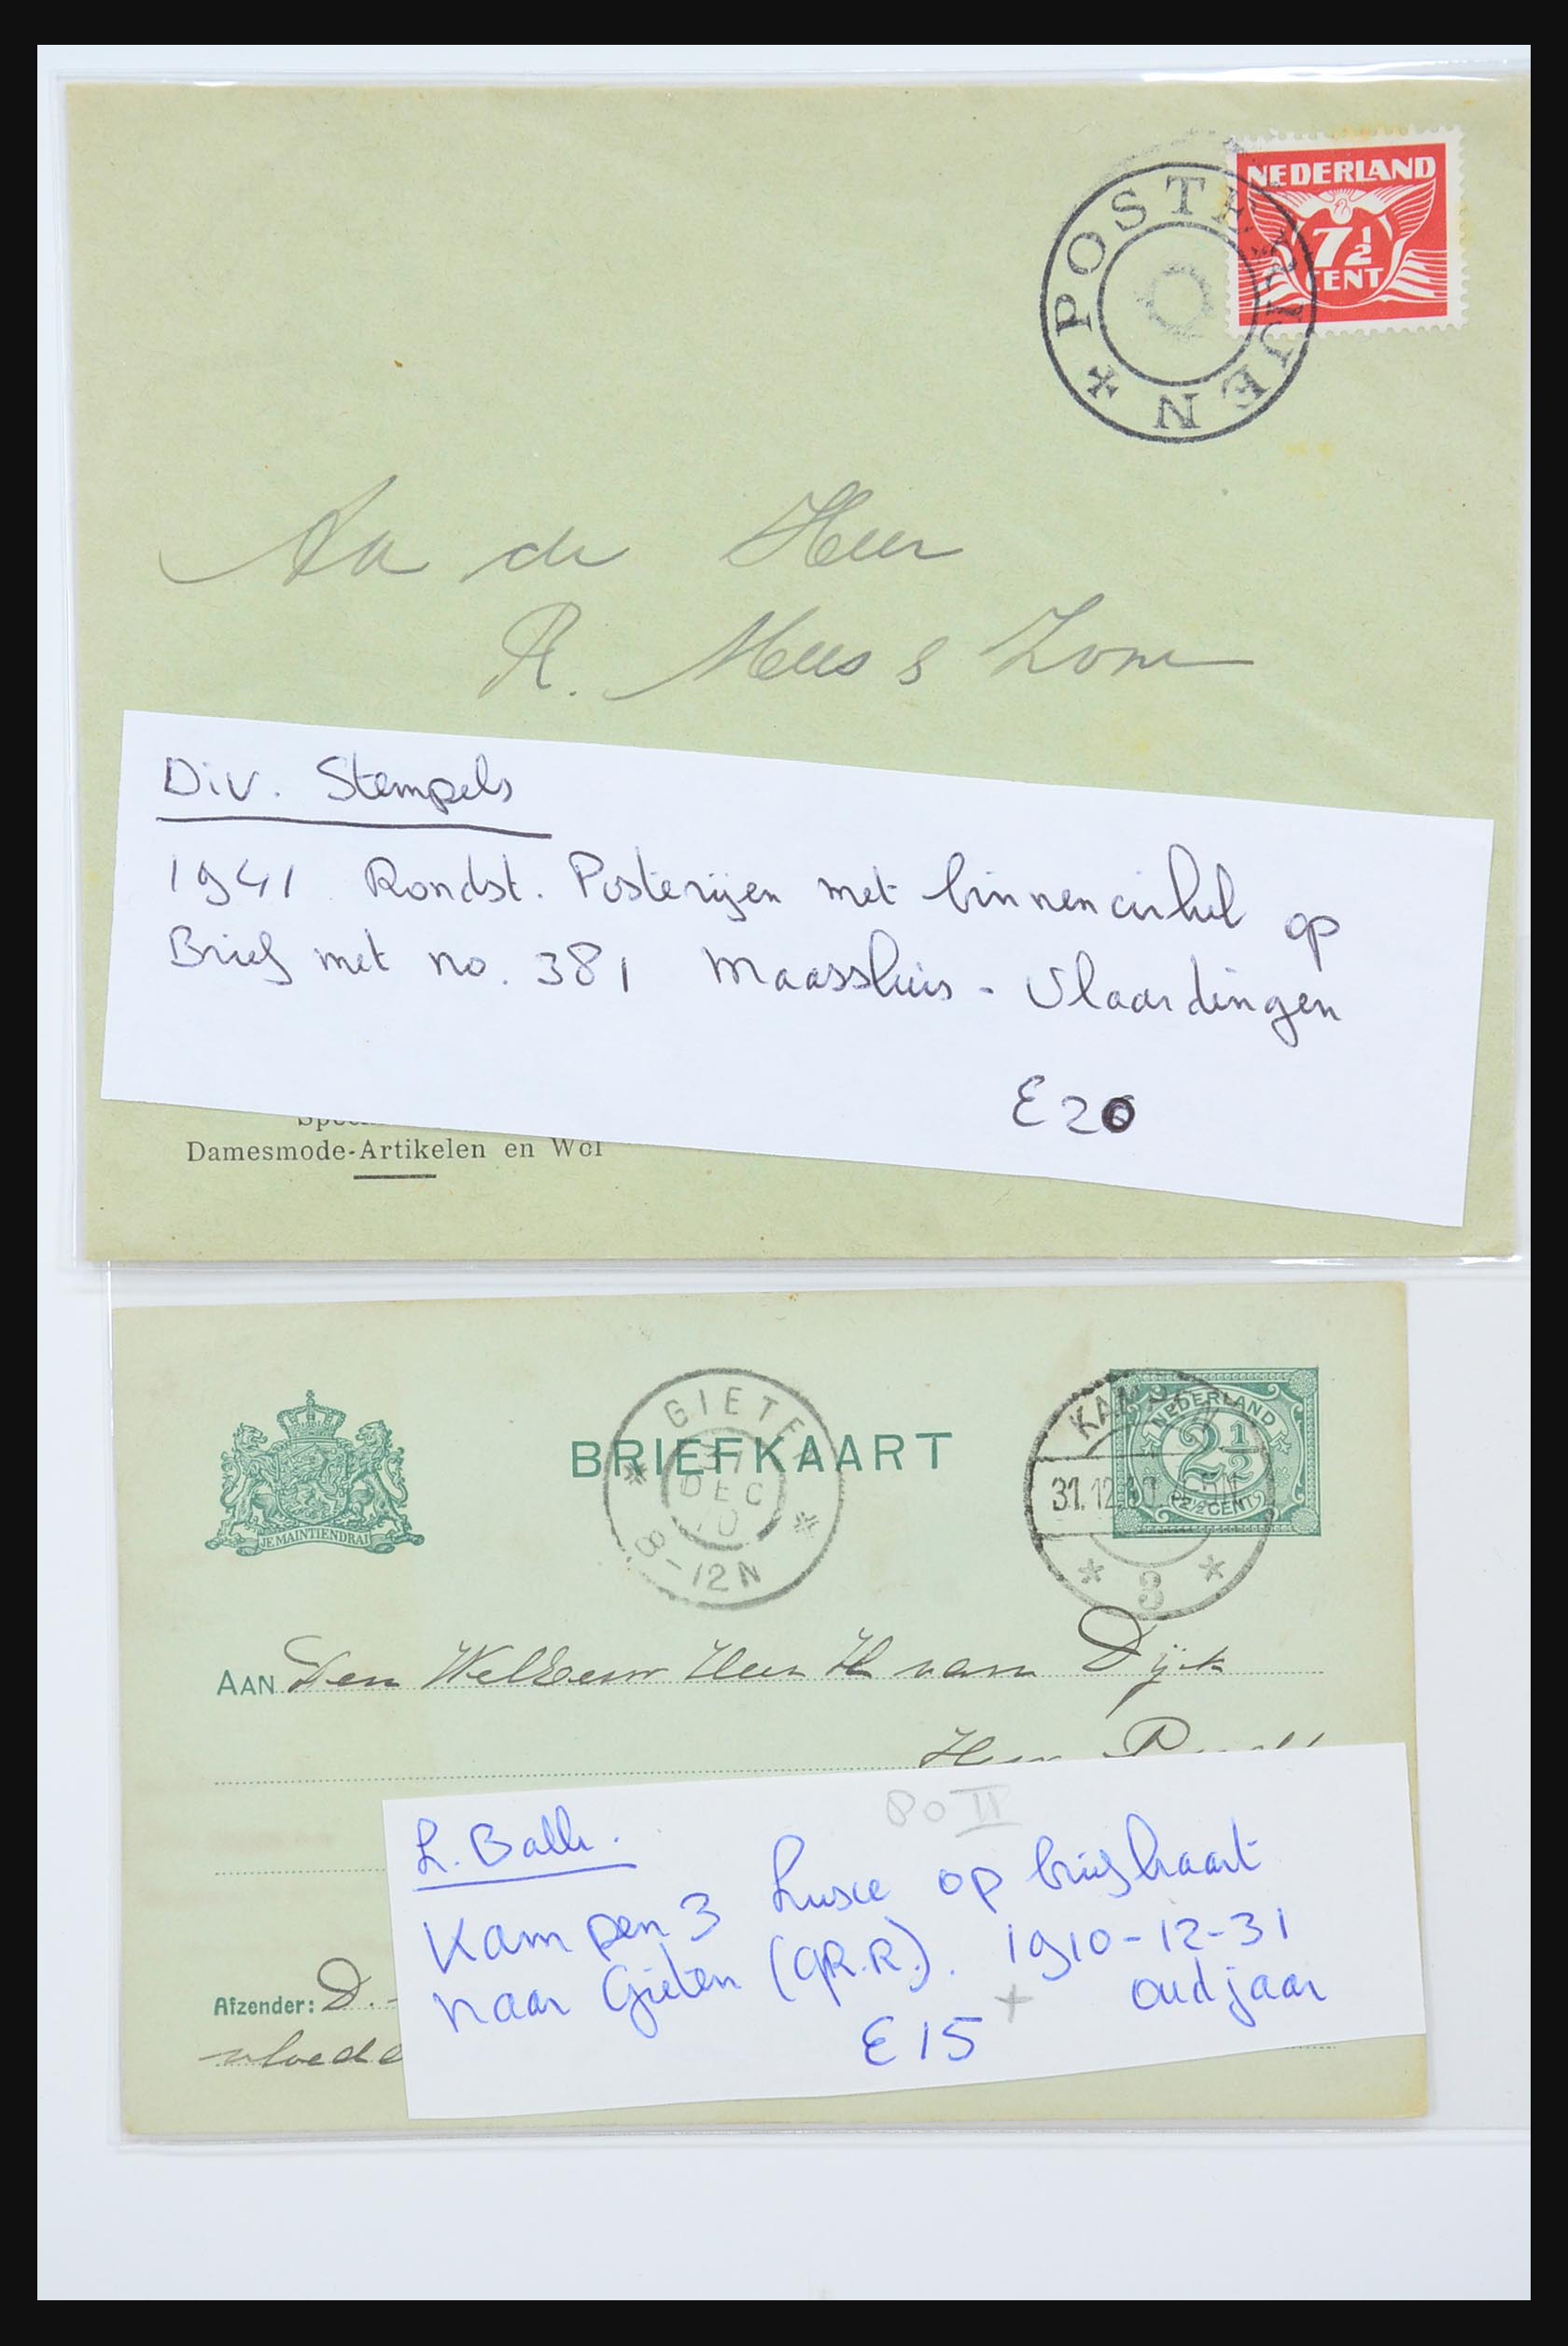 NEDERLAND
7½
CENT
POSTERIJEN
Aa de Heer
R. Mees & Zone
Div. Stempels
1941 Rondst. Posterijen met binnencirkel op
Brief met no. 381 Maassluis - Vlaardingen
€20
Damesmode-Artikelen en Wol
GIETEN
31
DEC
10
8-12N
BRIEFKAART
JE MAINTIENDRAI
KAMPEN
31.12.10
3
NEDERLAND
2½
2½CENT
AAN Den WelEerw Heer H van Dijk
80 II
L. Balk.
Kampen 3 Lusce op briefkaart
naar Gieten (GR.R.). 1910-12-31
oudjaar
€15
Afzender: D.
vloede